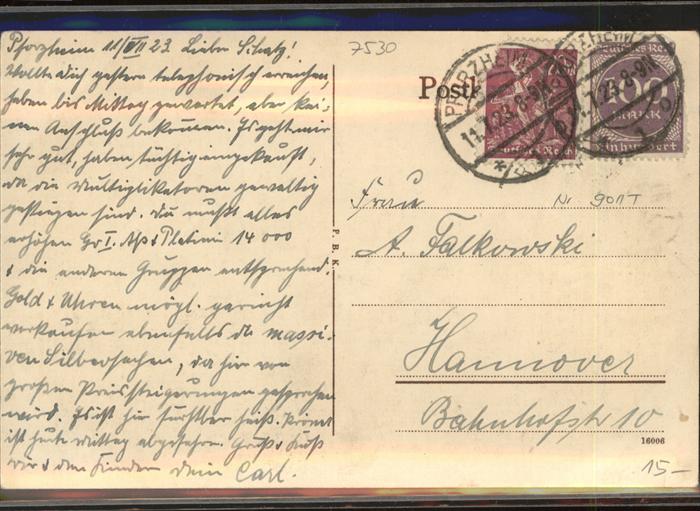 Pforzheim 11/VII 23. Lieber Schatz!
Wollte dich gestern telephonisch erreichen,
haben bis Mittag gewartet, aber kei-
nen Anschluß bekommen. Es geht mir
sehr gut, haben tüchtig eingekauft,
da die Multiplikatoren gewaltig
gestiegen sind. Du mußt alles
erhöhen Gr I. Platin 14 000
& die anderen Gruppen entsprechend.
Gold & Uhren mögl. garnicht
verkaufen ebenfalls die massi-
ven Silbersachen, da hier von
großen Preissteigerungen gesprochen
wird. Es ist hier furchtbar heiß.
ist heute Mittag abgefahren. Gruß & Kuß
Dir & den Kindern Dein Carl.
7530
Postk
PFORZHEIM
11.7.23.8-9
PFORZHEIM
11.7.23.8-9
Deutsches Reich
100
MARK
Einhundert
Frau
Nr 9011T
A. Falkowski
P. B. K.
Hannover
Bahnhofstr 10
16006
15-